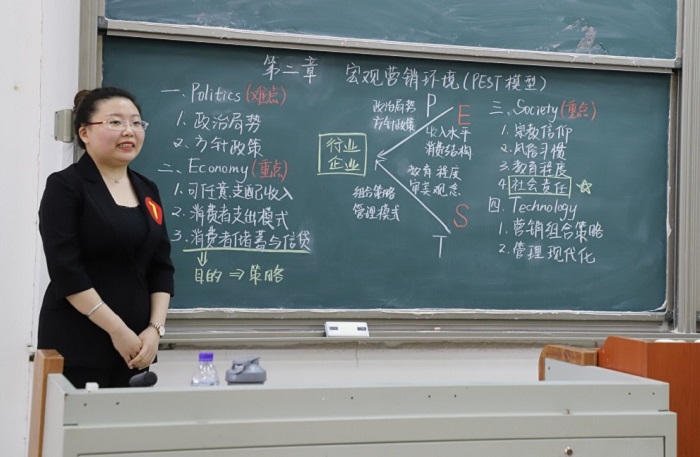 第二章 宏观营销环境(PEST模型)
一、Politics(难点)
1. 政治局势
2. 方针政策
二、Economy(重点)
1. 可任意支配收入
2. 消费者支出模式
3. 消费者储蓄与信贷
目的⇒策略
政治局势
方针政策
P
E
收入水平
消费结构
行业
企业
教育程度
审美观念
组合策略
管理模式
S
T
三、Society(重点)
1. 宗教信仰
2. 风俗习惯
3. 教育程度
4. 社会责任 ☆
四、Technology
1. 营销组合策略
2. 管理现代化